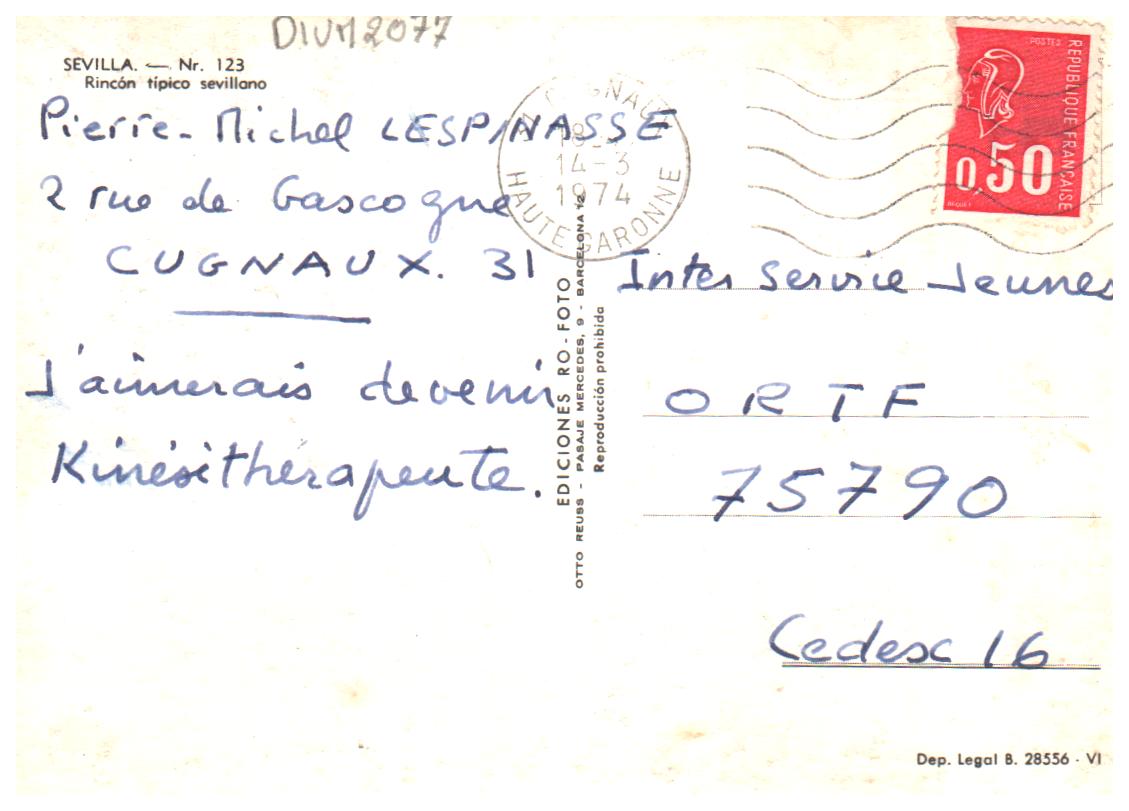 DIVM2077
SEVILLA. — Nr. 123
Rincón típico sevillano
Pierre-Michel LESPINASSE
2 rue de Gascogne
CUGNAUX. 31
J'aimerais devenir
Kinésithérapeute.
EDICIONES RO-FOTO
OTTO REUSS - PASAJE MERCEDES, 9 - BARCELONA 12
Reproducción prohibida
14-3
1974
HAUTE GARONNE
POSTES
REPUBLIQUE FRANÇAISE
0,50
BEQUET
Inter Service Jeunes
ORTF
75790
Cedesc 16
Dep. Legal B. 28556 - VI